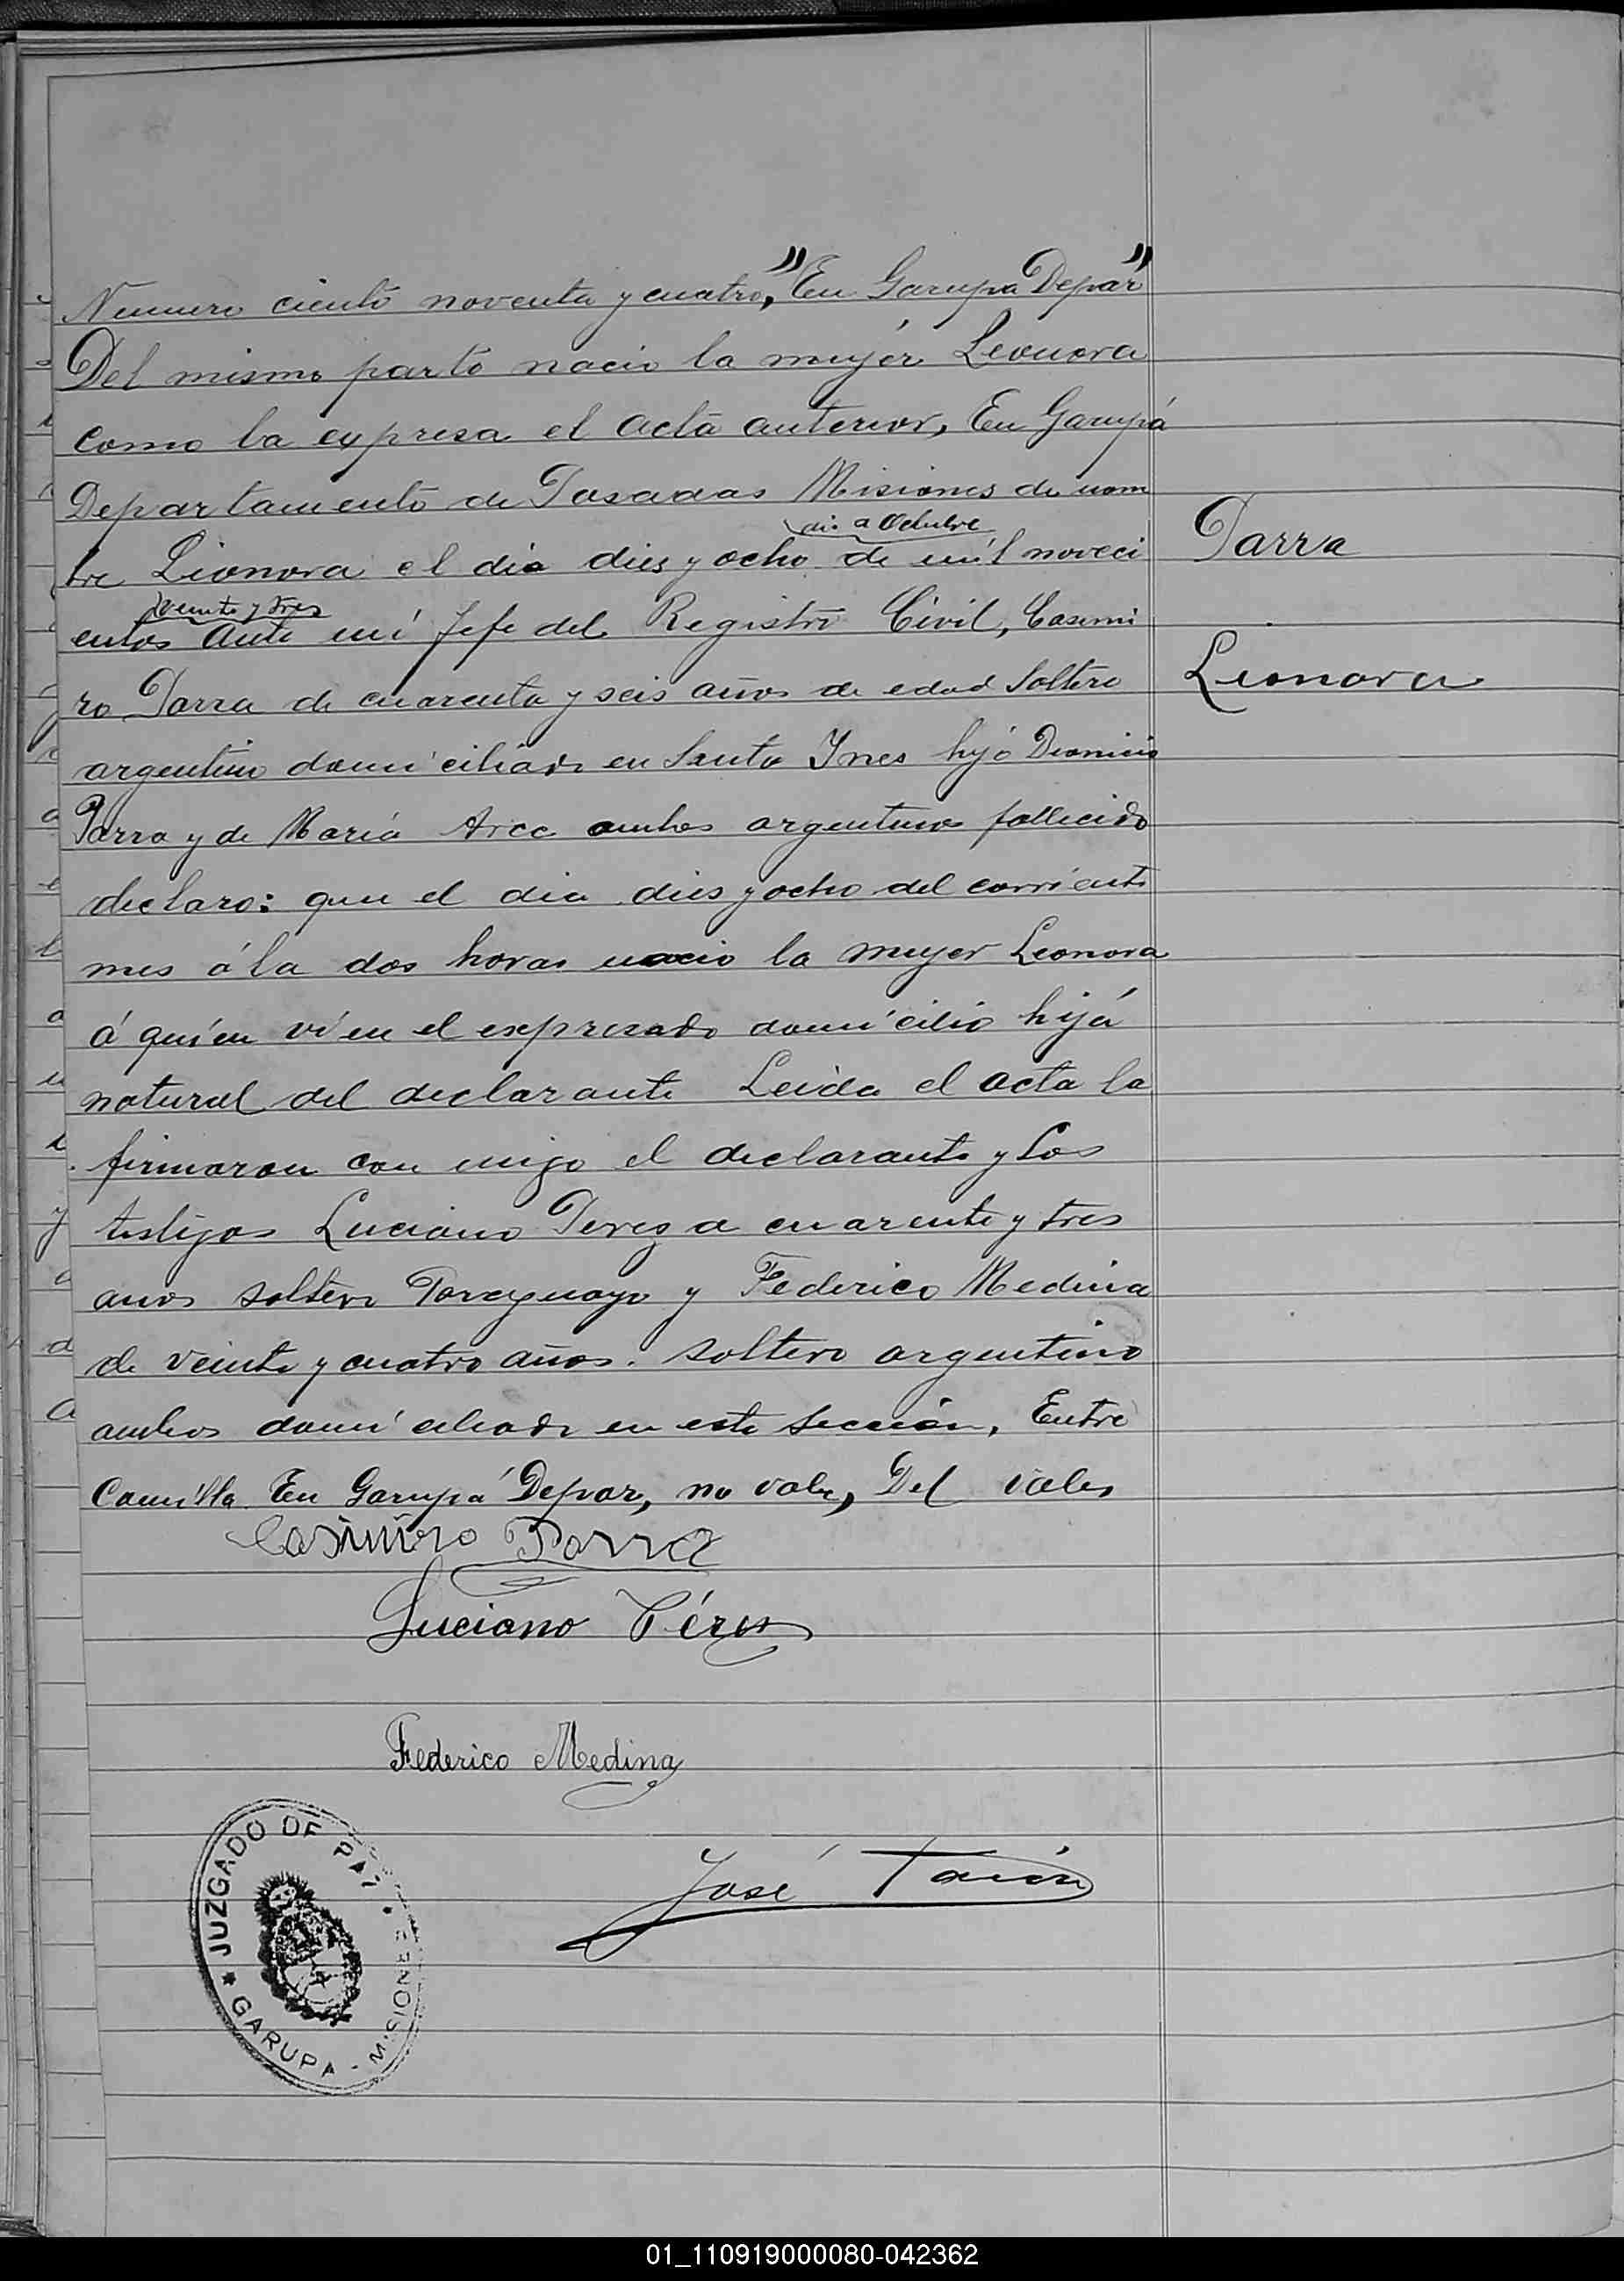 Numero ciento noventa y cuatro, "En Garupa Depar"
Del mismo parto nacio la mujér Leonora
como la expresa el acta anterior, En Garupá
Departamento de Posadas Misiones de nom
a Octubre
bre Lionora el día dies y ocho de mil noveci
veinte y tres
entos ante mí Jefe del Registro Civil, Casimi
ro Parra de cuarenta y seis años de edad Soltero
argentino domiciliado en Santa Ynes hijo Dionicio
Parra y de María Arce ambos argentinos fallecido
declaro: que el dia dies y ocho del corriente
mes á la dos horas nacio la mujer Leonora
á quíen ví en el expresado domicilio hijá
natural del declarante Leida el acta la
firmaron con migo el declarante y Los
testigos Luciano Perez a cuarente y tres
anos soltero Paraguayo y Federico Medina
de veinte y cuatro años. soltero argentino
ambos domiciliado en esta sección, Entre
Comilla En Garupá Depar, no vale, Del vales
Parra
Lionora
Casimiro Parra
Luciano Pérez
Federico Medina
José
JUZGADO DE PAZ
GARUPA - MISIONES
01_110919000080-042362